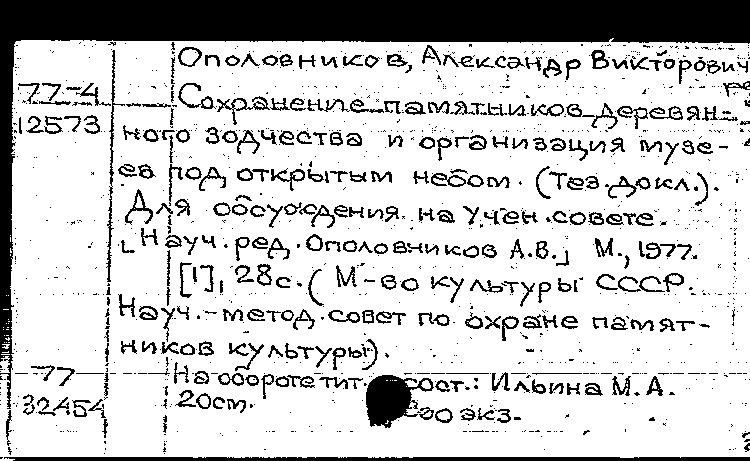 Ополовников, Александр Викторович
77-4
Сохранение памятников деревян-
12573
ного зодчества и организация музе-
ев под открытым небом. (Тез. докл.).
Для обсуждения на Учен. совете.
[Науч. ред. Ополовников А.В.] М., 1977.
[1], 28с. (М-во культуры СССР.
Науч.-метод. совет по охране памят-
ников культуры).
77
На обороте тит. сост.: Ильина М.А.
32454
20см. экз.